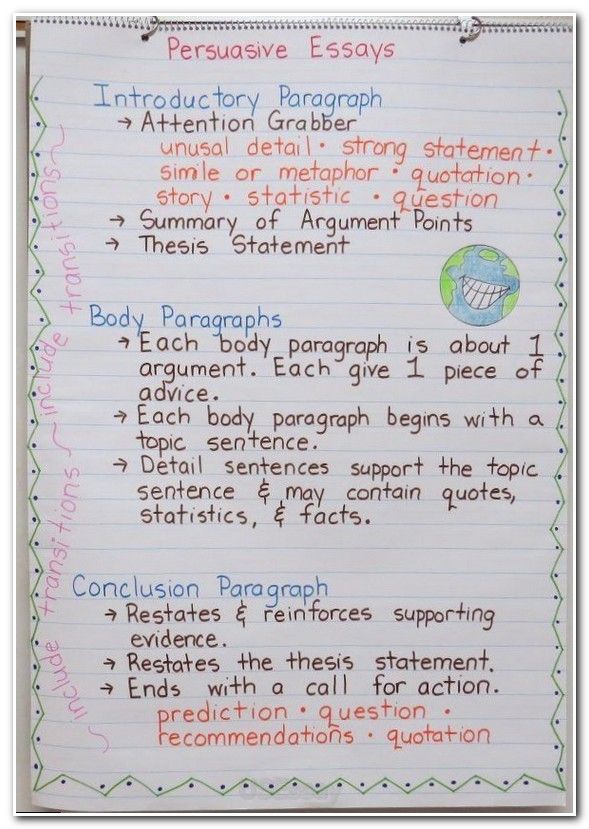 Persuasive Essays
Introductory Paragraph
→ Attention Grabber
unusal detail · strong statement ·
simile or metaphor · quotation ·
story · statistic · question
→ Summary of Argument Points
→ Thesis Statement
Body Paragraphs
→ Each body paragraph is about 1
argument. Each give 1 piece of
advice.
→ Each body paragraph begins with a
topic sentence.
→ Detail sentences support the topic
sentence & may contain quotes,
statistics, & facts.
Conclusion Paragraph
→ Restates & reinforces supporting
evidence.
→ Restates the thesis statement.
→ Ends with a call for action.
prediction · question ·
recommendations · quotation
~ include transitions ~ include transitions ~ include transitions ~